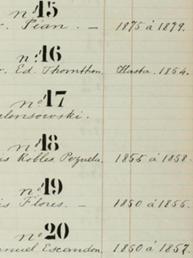 n.º 15
r. Jean. — 1875 á 1879.
n.º 16
r. Ed. Thornthon, Hasta. 1854.
n.º 17
alensowski.
n.º 18
is Robles Pezuela, 1855 á 1858.
n.º 19
is Flores. — 1850 á 1855.
n.º 20
anuel Escandon, 1850 á 1857.